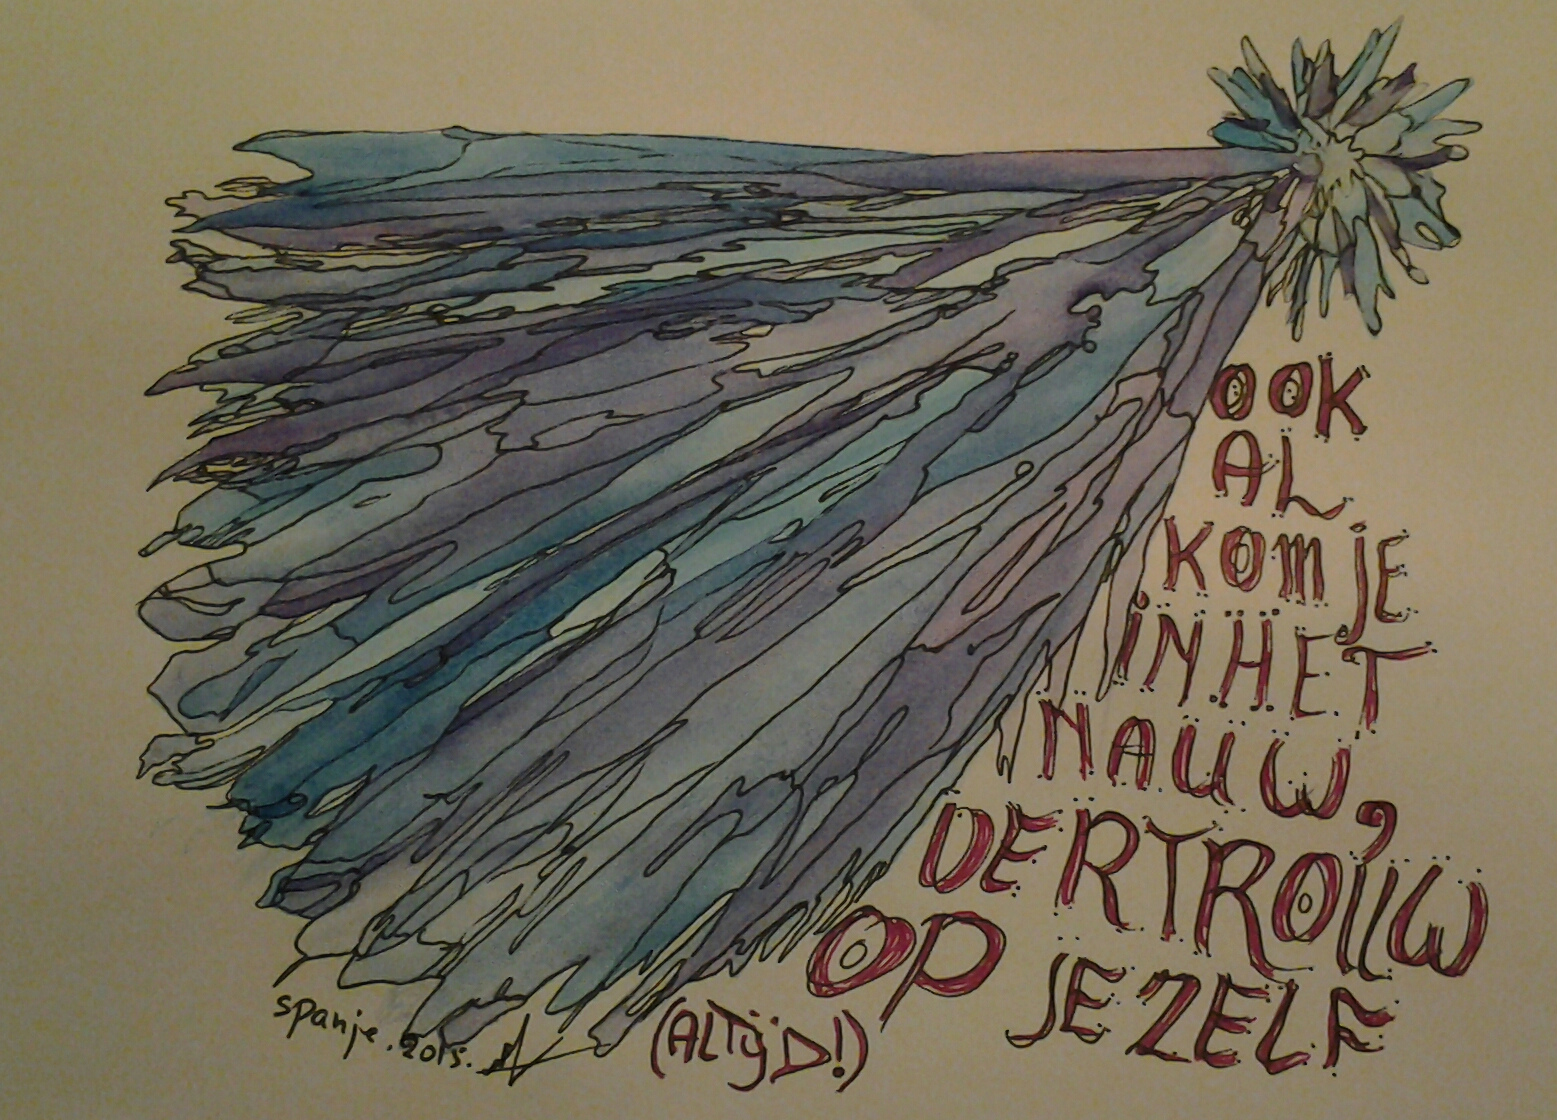 OOK
AL
KOM JE
IN HET
NAUW,
VERTROUW
OP JEZELF
(ALTijD!)
spanje. 2015.